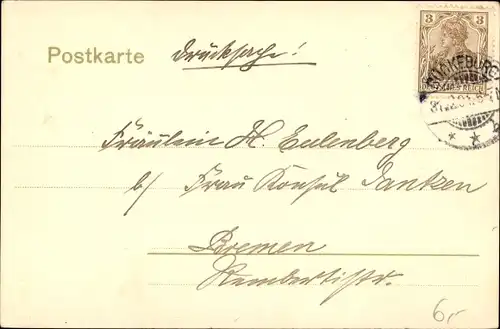 Postkarte Drucksache!
3
DEUTSCHES REICH
QUAKEBURG
Fräulein H. Eulenberg
b/ Frau Konsul Jantzen
Bremen
Rembertistr.
6,-